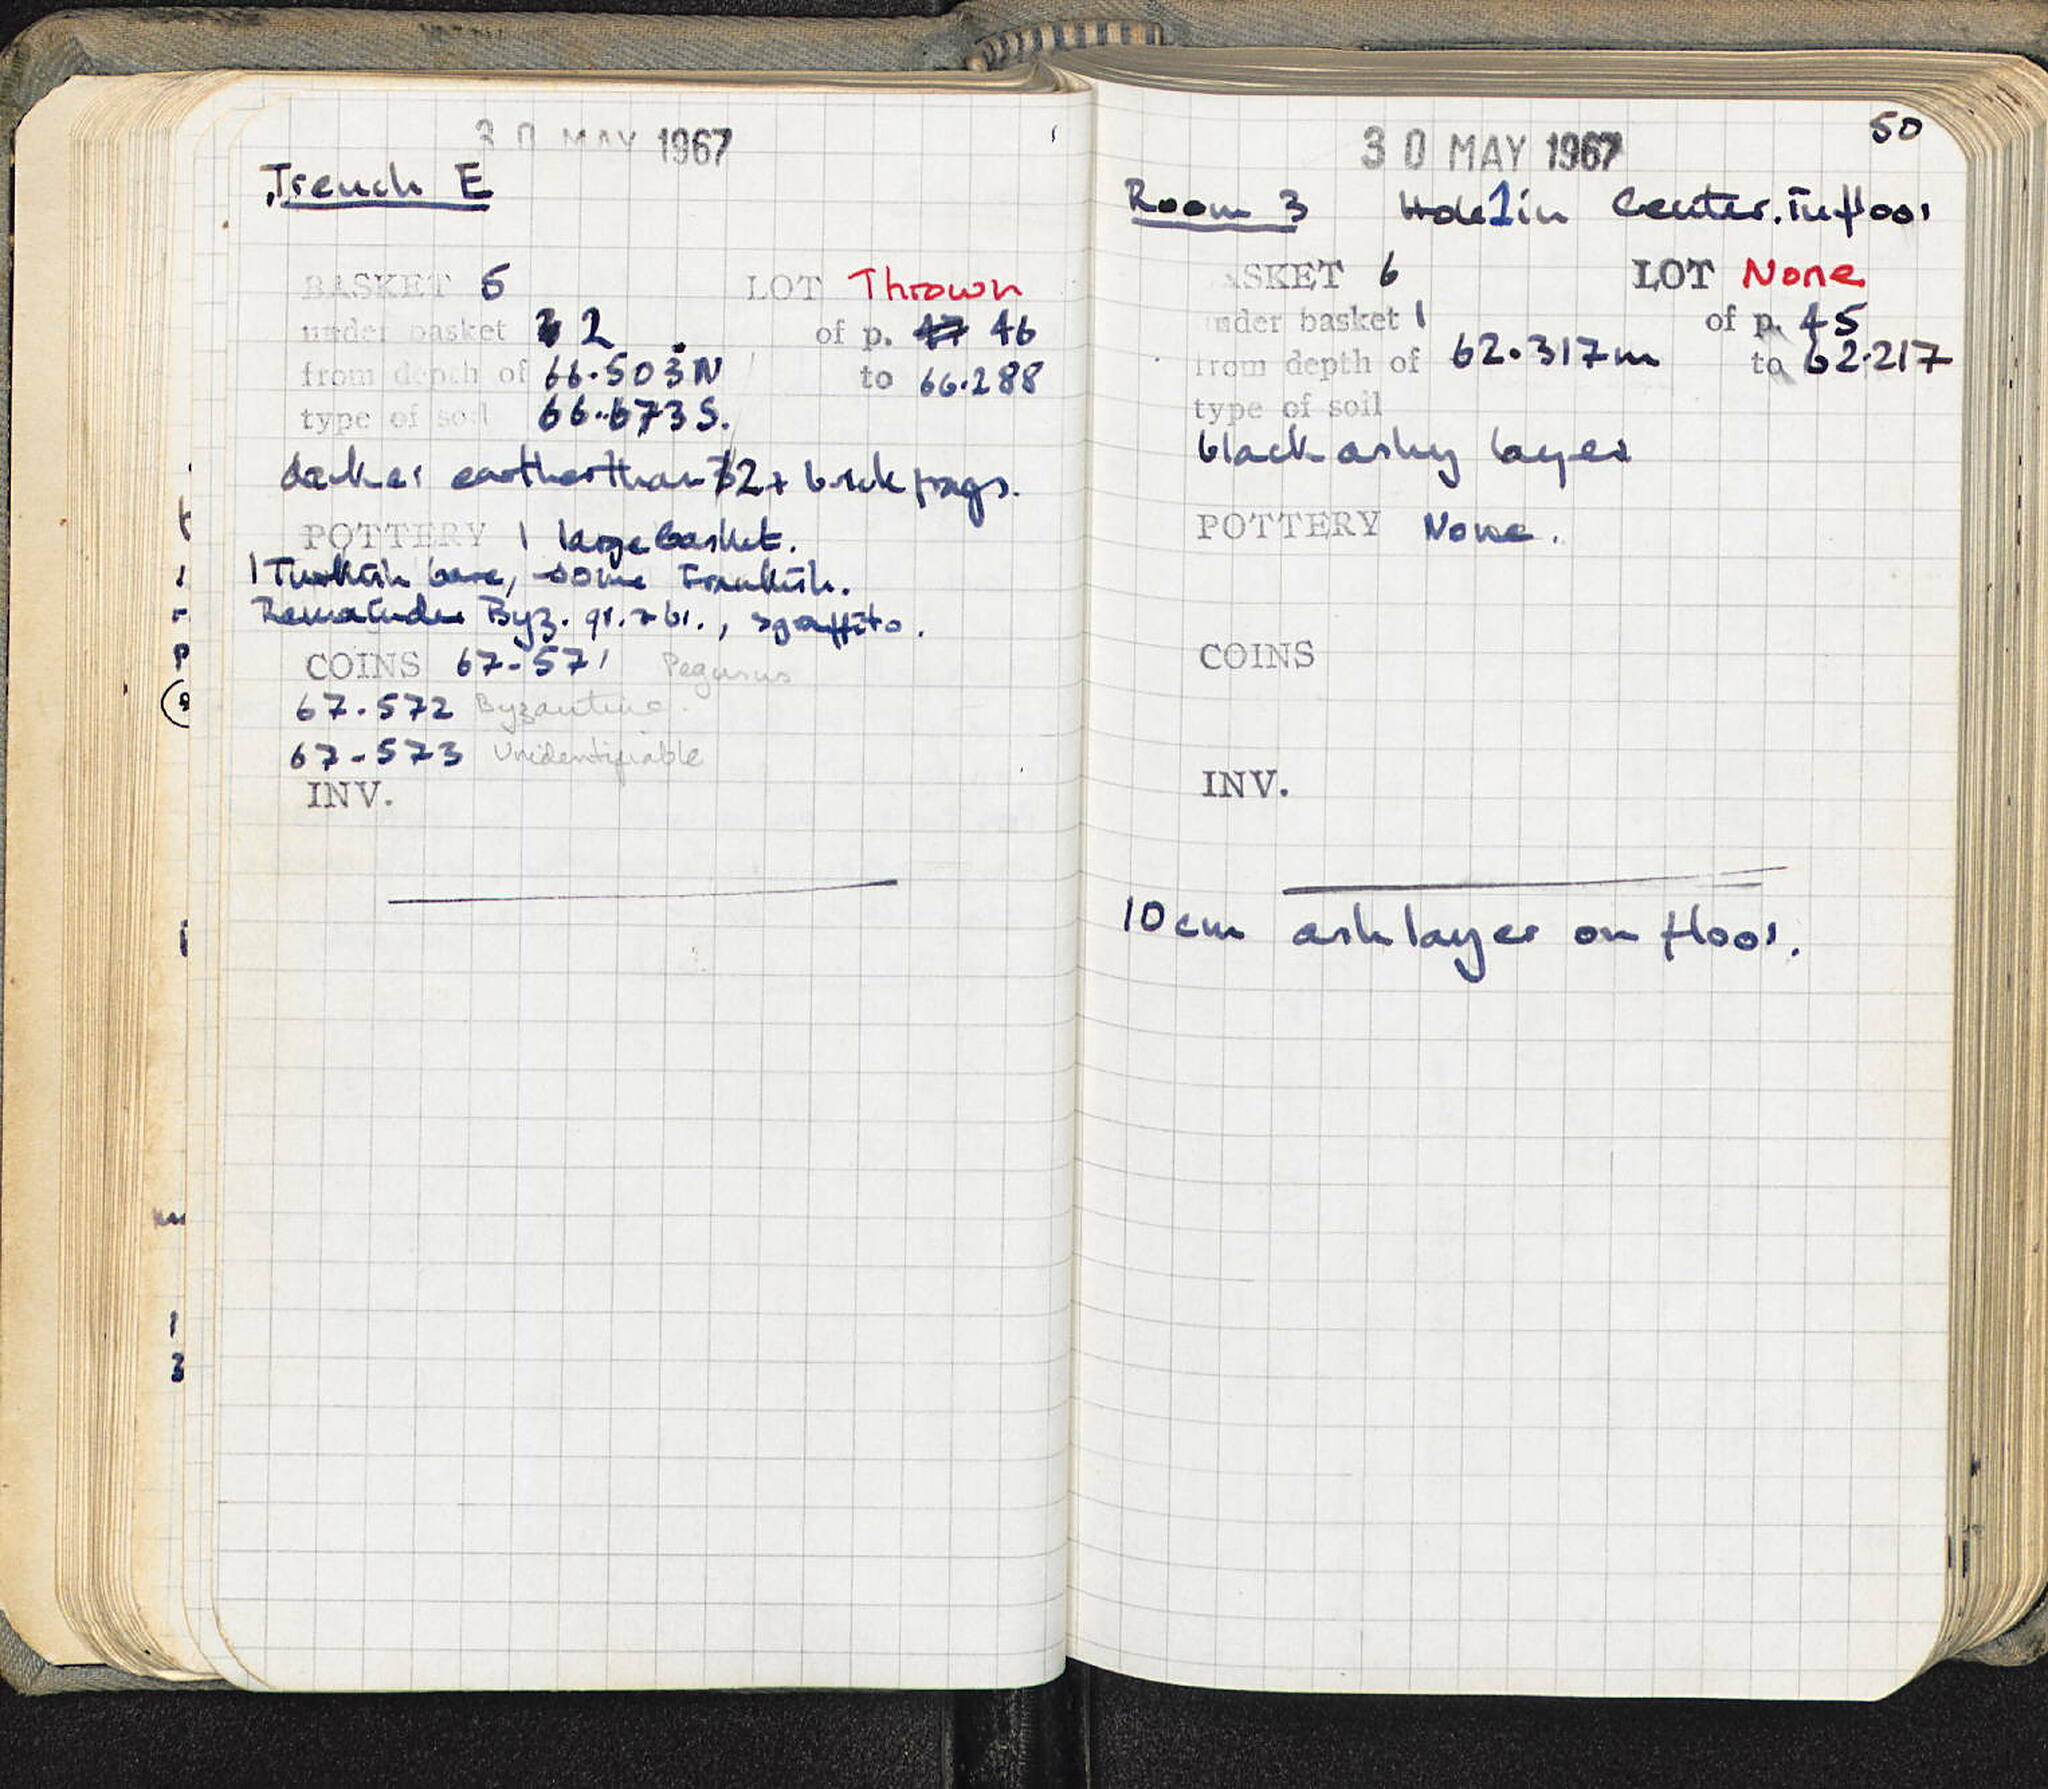 30 MAY 1967
Trench E
BASKET 5 LOT Thrown
under basket 2 of p. 47 46
from depth of 66.503N to 66.288
type of soil 66.673S.
darker earth than 2 + brick frags.
POTTERY 1 large basket.
1 Turkish base, some Frankish.
Remainder Byz. gr. + br., sgraffito.
COINS 67-571 Pegasus
67.572 Byzantine.
67-573 Unidentifiable
INV.
50
30 MAY 1967
Room 3 Hole 1 in Center. in floor
ASKET 6 LOT None
nder basket 1 of p. 45
from depth of 62.317m to 62.217
type of soil
black ashy layer
POTTERY None.
COINS
INV.
10 cm ash layer on floor.